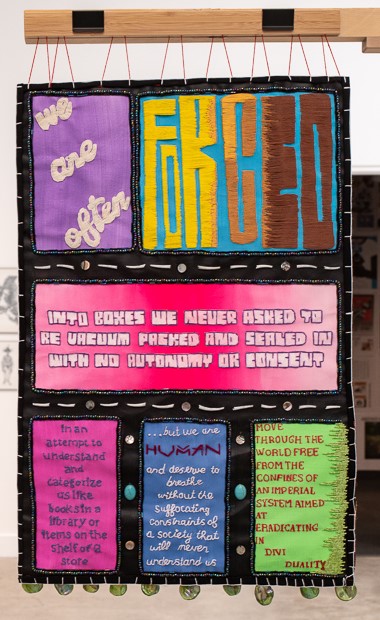 we
are
often
FORCED
INTO BOXES WE NEVER ASKED TO
BE VACUUM PACKED AND SEALED IN
WITH NO AUTONOMY OR CONSENT
in an
attempt to
understand
and
categorize
us like
books in a
library or
items on the
shelf of a
store
...but we are
HUMAN
and deserve to
breathe
without the
suffocating
constraints of
a society that
will never
understand us
MOVE
THROUGH THE
WORLD FREE
FROM THE
CONFINES OF
AN IMPERIAL
SYSTEM AIMED
AT
ERADICATING
IN
DIVI
DUALITY